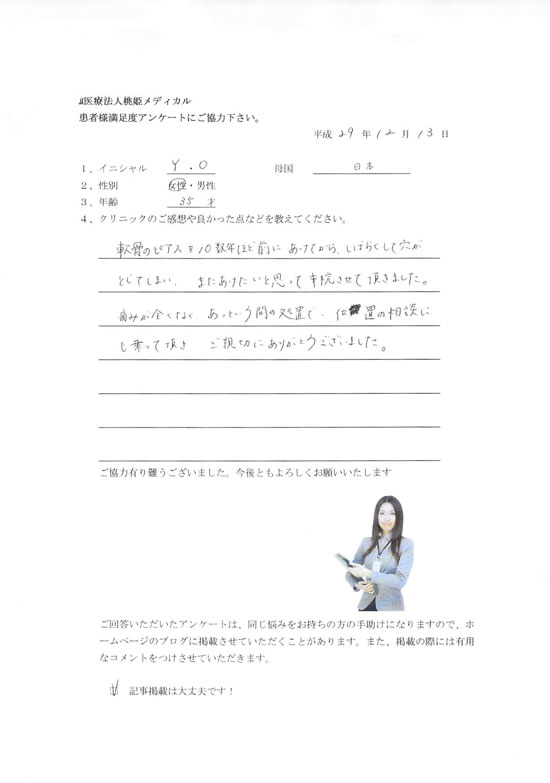 医療法人桃姫メディカル
患者様満足度アンケートにご協力下さい。
平成 29 年 12 月 13 日
1、イニシャル Y.O 母国 日本
2、性別 女性・男性
3、年齢 35 才
4、クリニックのご感想や良かった点などを教えてください。
軟骨のピアスを10数年ほど前にあけてから、しばらくして穴が
とじてしまい、またあけたいと思って来院させて頂きました。
痛みが全くなく、あっという間の処置で、位置の相談に
も乗って頂き、ご親切にありがとうございました。
ご協力有り難うございました。今後ともよろしくお願いいたします
ご回答いただいたアンケートは、同じ悩みをお持ちの方の手助けになりますので、ホ
ームページのブログに掲載させていただくことがあります。また、掲載の際には有用
なコメントをつけさせていただきます。
記事掲載は大丈夫です！